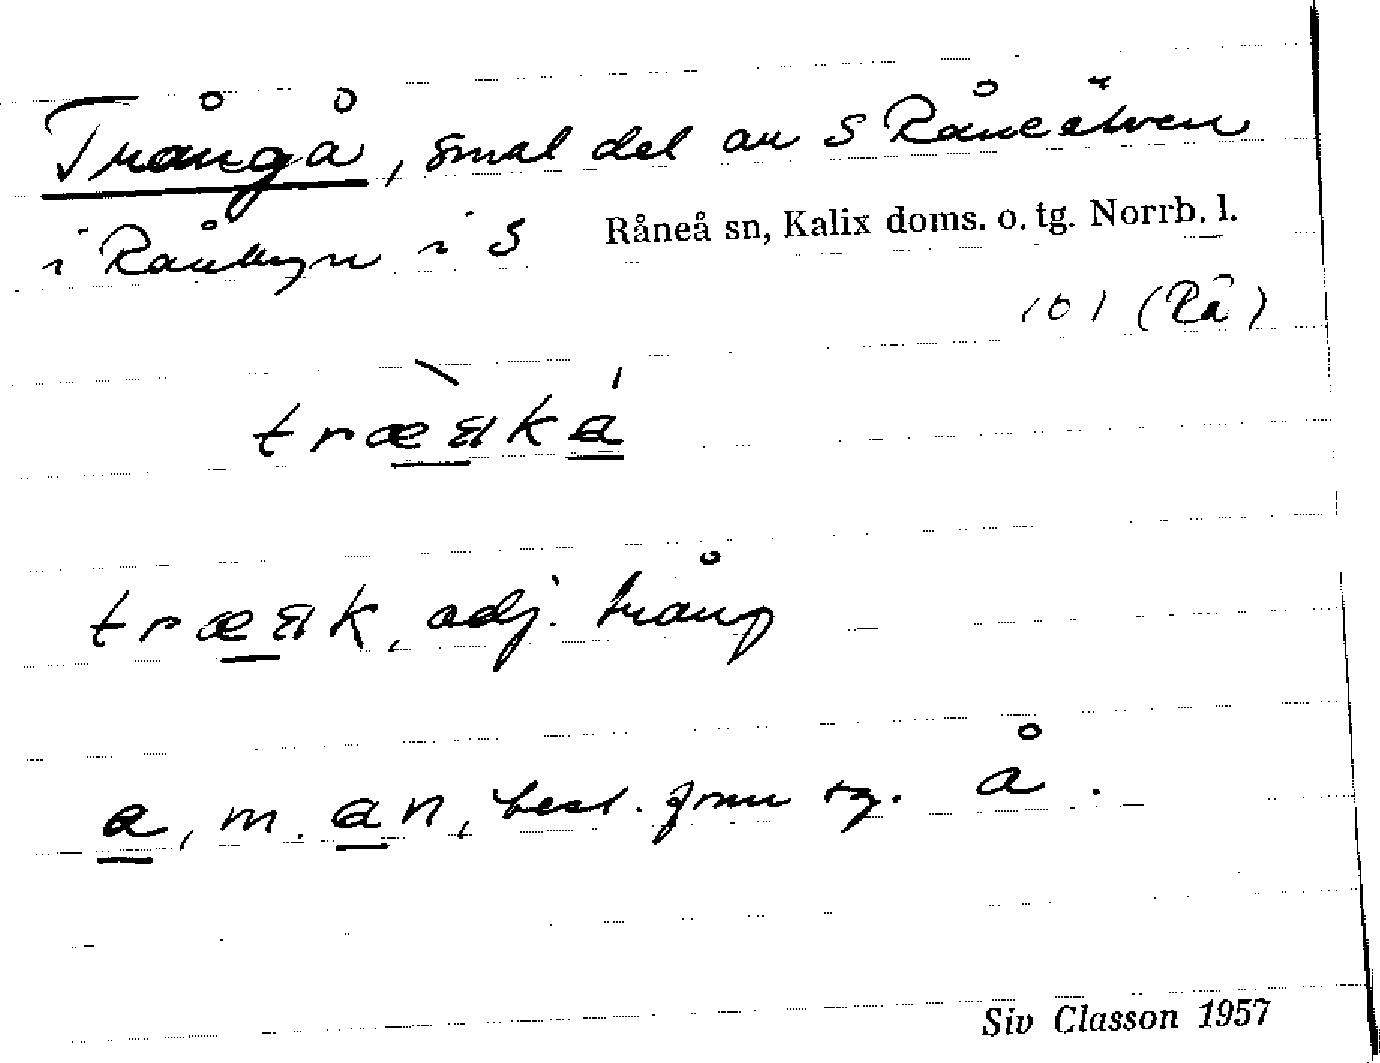 Trångå, smal del av S Råneälven
i Rånbyn i S Råneå sn, Kalix doms. o. tg. Norrb. l.
101 (Rå)
adj. trång
a, m. an, best. form sg. å.
Siv Classon 1957